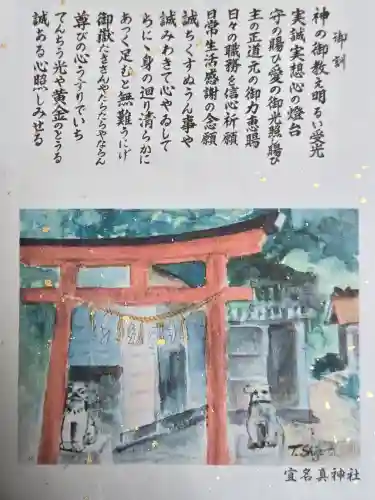 御訓
神の御教え明るい愛光
実誠実慈心の燈台
守の賜ひ愛の御光照賜ひ
主の正道元の御力恵賜
日々の職務を信心祈願
日常生活感謝の念願
誠ちくすぬうん事や
誠みわきて心やるして
らに丶身の迴り清らかに
あつく足むと無難うにげ
御嶽たきさんやたらたらやなろん
尊びの心うすりでいち
てんもう光や黄金のとうる
誠ある心照しみせる
T.Shi
宜名真神社